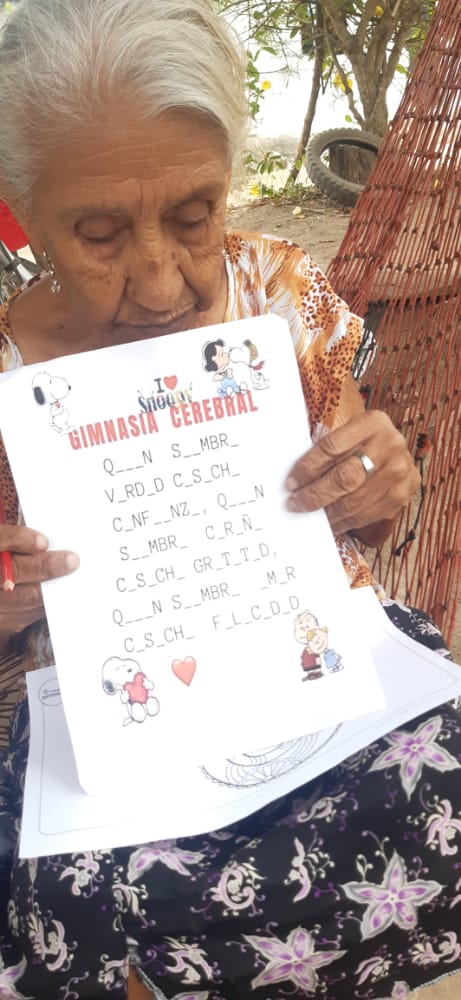 I ❤
Snoopy
GIMNASIA CEREBRAL
Q___N S__MBR_
V_RD_D C_S_CH_
C_NF__NZ_, Q___N
S__MBR_ C_R_Ñ_
C_S_CH_ GR_T_T_D,
Q___N S__MBR_ _M_R
C_S_CH_ F_L_C_D_D